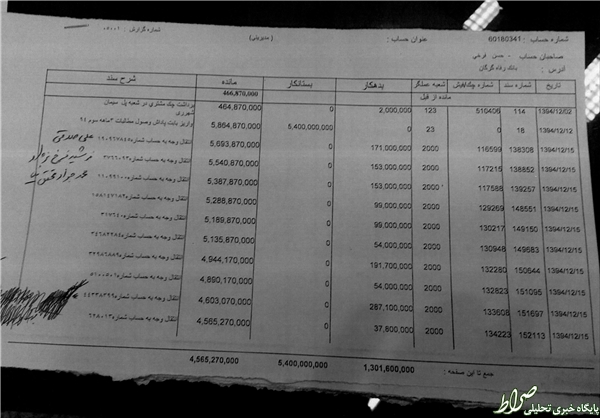 شماره حساب : 60180341 عنوان حساب : ( مدیریتی ) شماره گزارش :
صاحبان حساب : - حسن فرخی
آدرس : بانک رفاه گرگان
تاریخ شماره سند شماره چک/فیش شعبه عملگر بدهکار بستانکار مانده شرح سند
مانده از قبل 466,870,000
1394/12/02 114 516406 123 2,000,000 0 464,870,000 برداشت چک مشتری در شعبه پل سیمان شهرری
1394/12/12 18 0 23 0 5,400,000,000 5,864,870,000 واریز بابت پاداش وصول مطالبات ۳ماهه سوم ۹۴
1394/12/15 138308 116599 2000 171,000,000 0 5,693,870,000 انتقال وجه به حساب شماره
1394/12/15 138852 117215 2000 153,000,000 0 5,540,870,000 انتقال وجه به حساب شماره
1394/12/15 139257 117588 2000 153,000,000 0 5,387,870,000 انتقال وجه به حساب شماره
1394/12/15 148551 129269 2000 99,000,000 0 5,288,870,000 انتقال وجه به حساب شماره
1394/12/15 149150 130217 2000 99,000,000 0 5,189,870,000 انتقال وجه به حساب شماره
1394/12/15 149683 130948 2000 54,000,000 0 5,135,870,000 انتقال وجه به حساب شماره
1394/12/15 150644 132280 2000 191,700,000 0 4,944,170,000 انتقال وجه به حساب شماره
1394/12/15 151095 132823 2000 54,000,000 0 4,890,170,000 انتقال وجه به حساب شماره
1394/12/15 151697 133608 2000 287,100,000 0 4,603,070,000 انتقال وجه به حساب شماره
1394/12/15 152113 134223 2000 37,800,000 0 4,565,270,000 انتقال وجه به حساب شماره
جمع تا این صفحه : 1,301,600,000 5,400,000,000 4,565,270,000
علی صدقی
صراط
پایگاه خبری تحلیلی